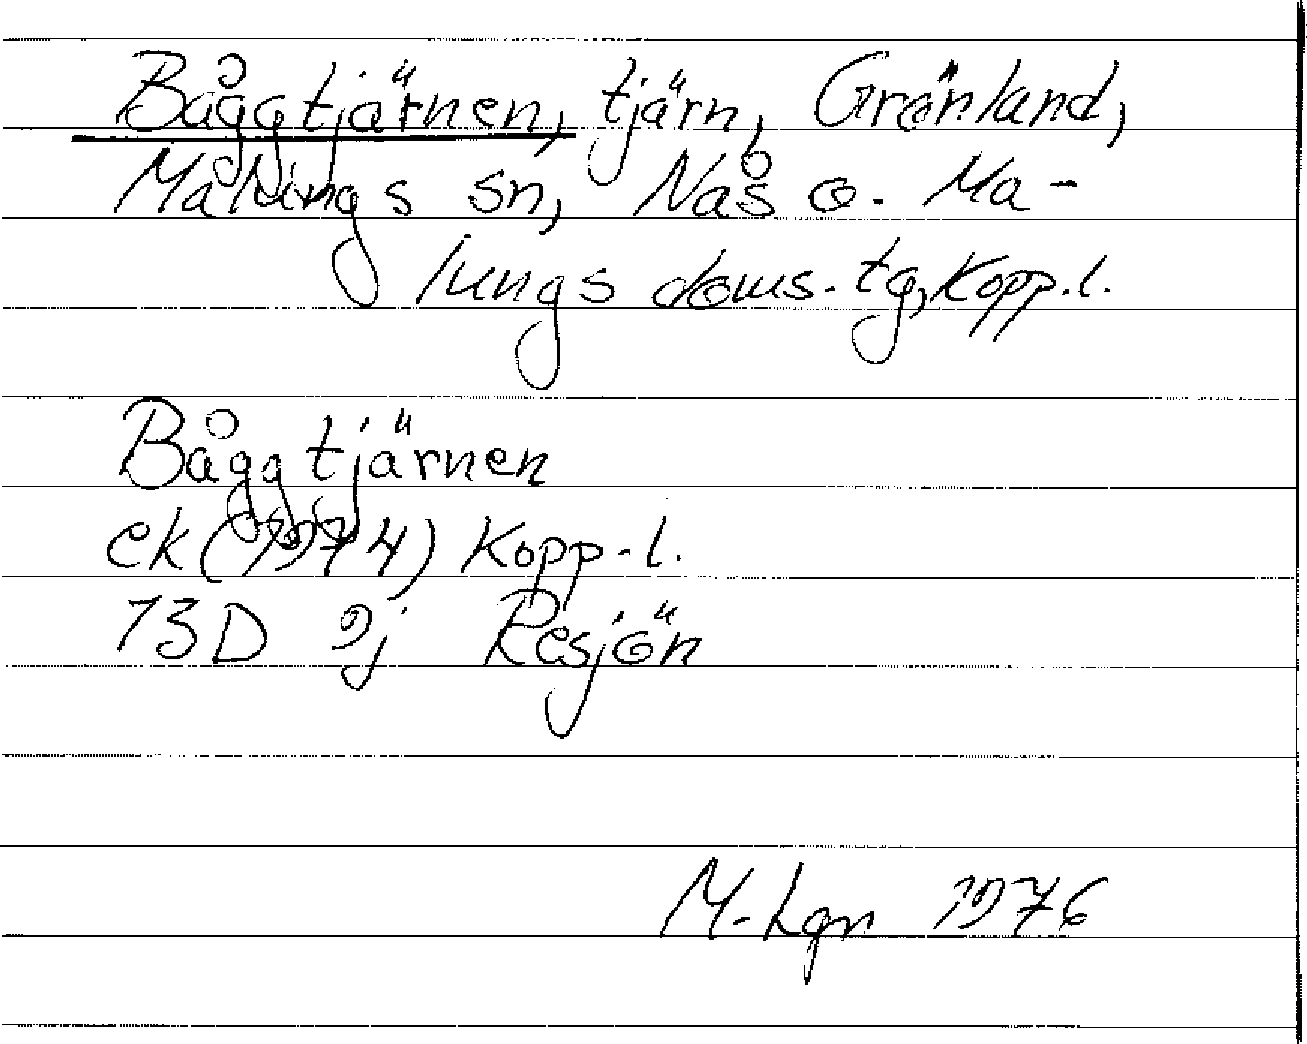 Båggtjärnen, tjärn, Grönland,
Malungs sn, Nås o. Ma-
lungs doms. tg, Kopp.l.
Båggtjärnen
ek (1974) Kopp.l.
13D 9j Resjön
M-Lgn 1976